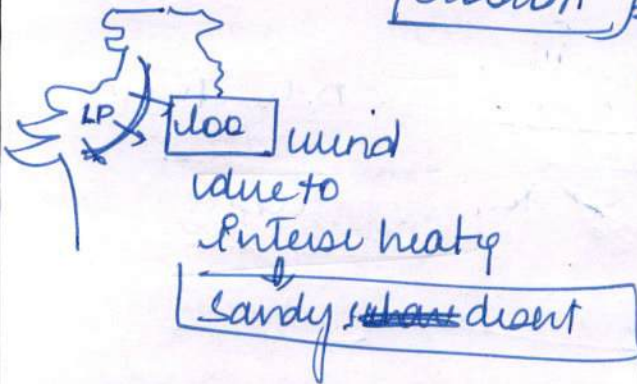 LP
Loo wind
due to
Intense heatg
Sandy desert